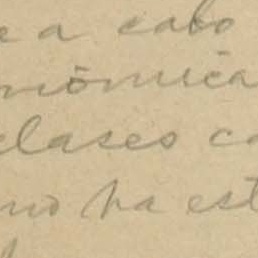 e a cabo
nómica
clases co
no ha est